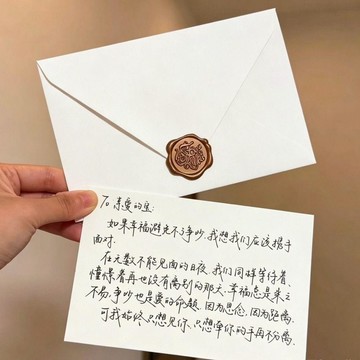 To 亲爱的宝:
如果幸福避免不了争吵,我想我们应该携手
面对.
在无数不能见面的日夜,我们同样等待着、
憧憬着再也没有离别的那天.幸福总是来之
不易,争吵也是爱的命题,因为思念,因为距离.
可我始终只想见你、只想牵你的手再不分离.